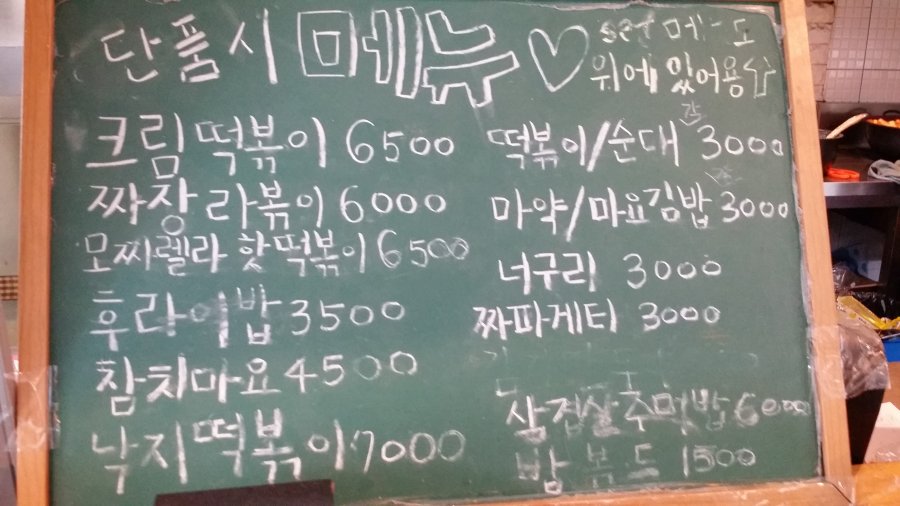 단품시 메뉴 ♡
set 메뉴도
위에 있어용
크림떡볶이 6500
짜장 라볶이 6000
모찌렐라 핫떡볶이 6500
후라이밥 3500
참치마요 4500
낙지떡볶이 7000
각
떡볶이/순대 3000
마약/마요김밥 3000
너구리 3000
짜파게티 3000
삼겹살주먹밥 6000
1500